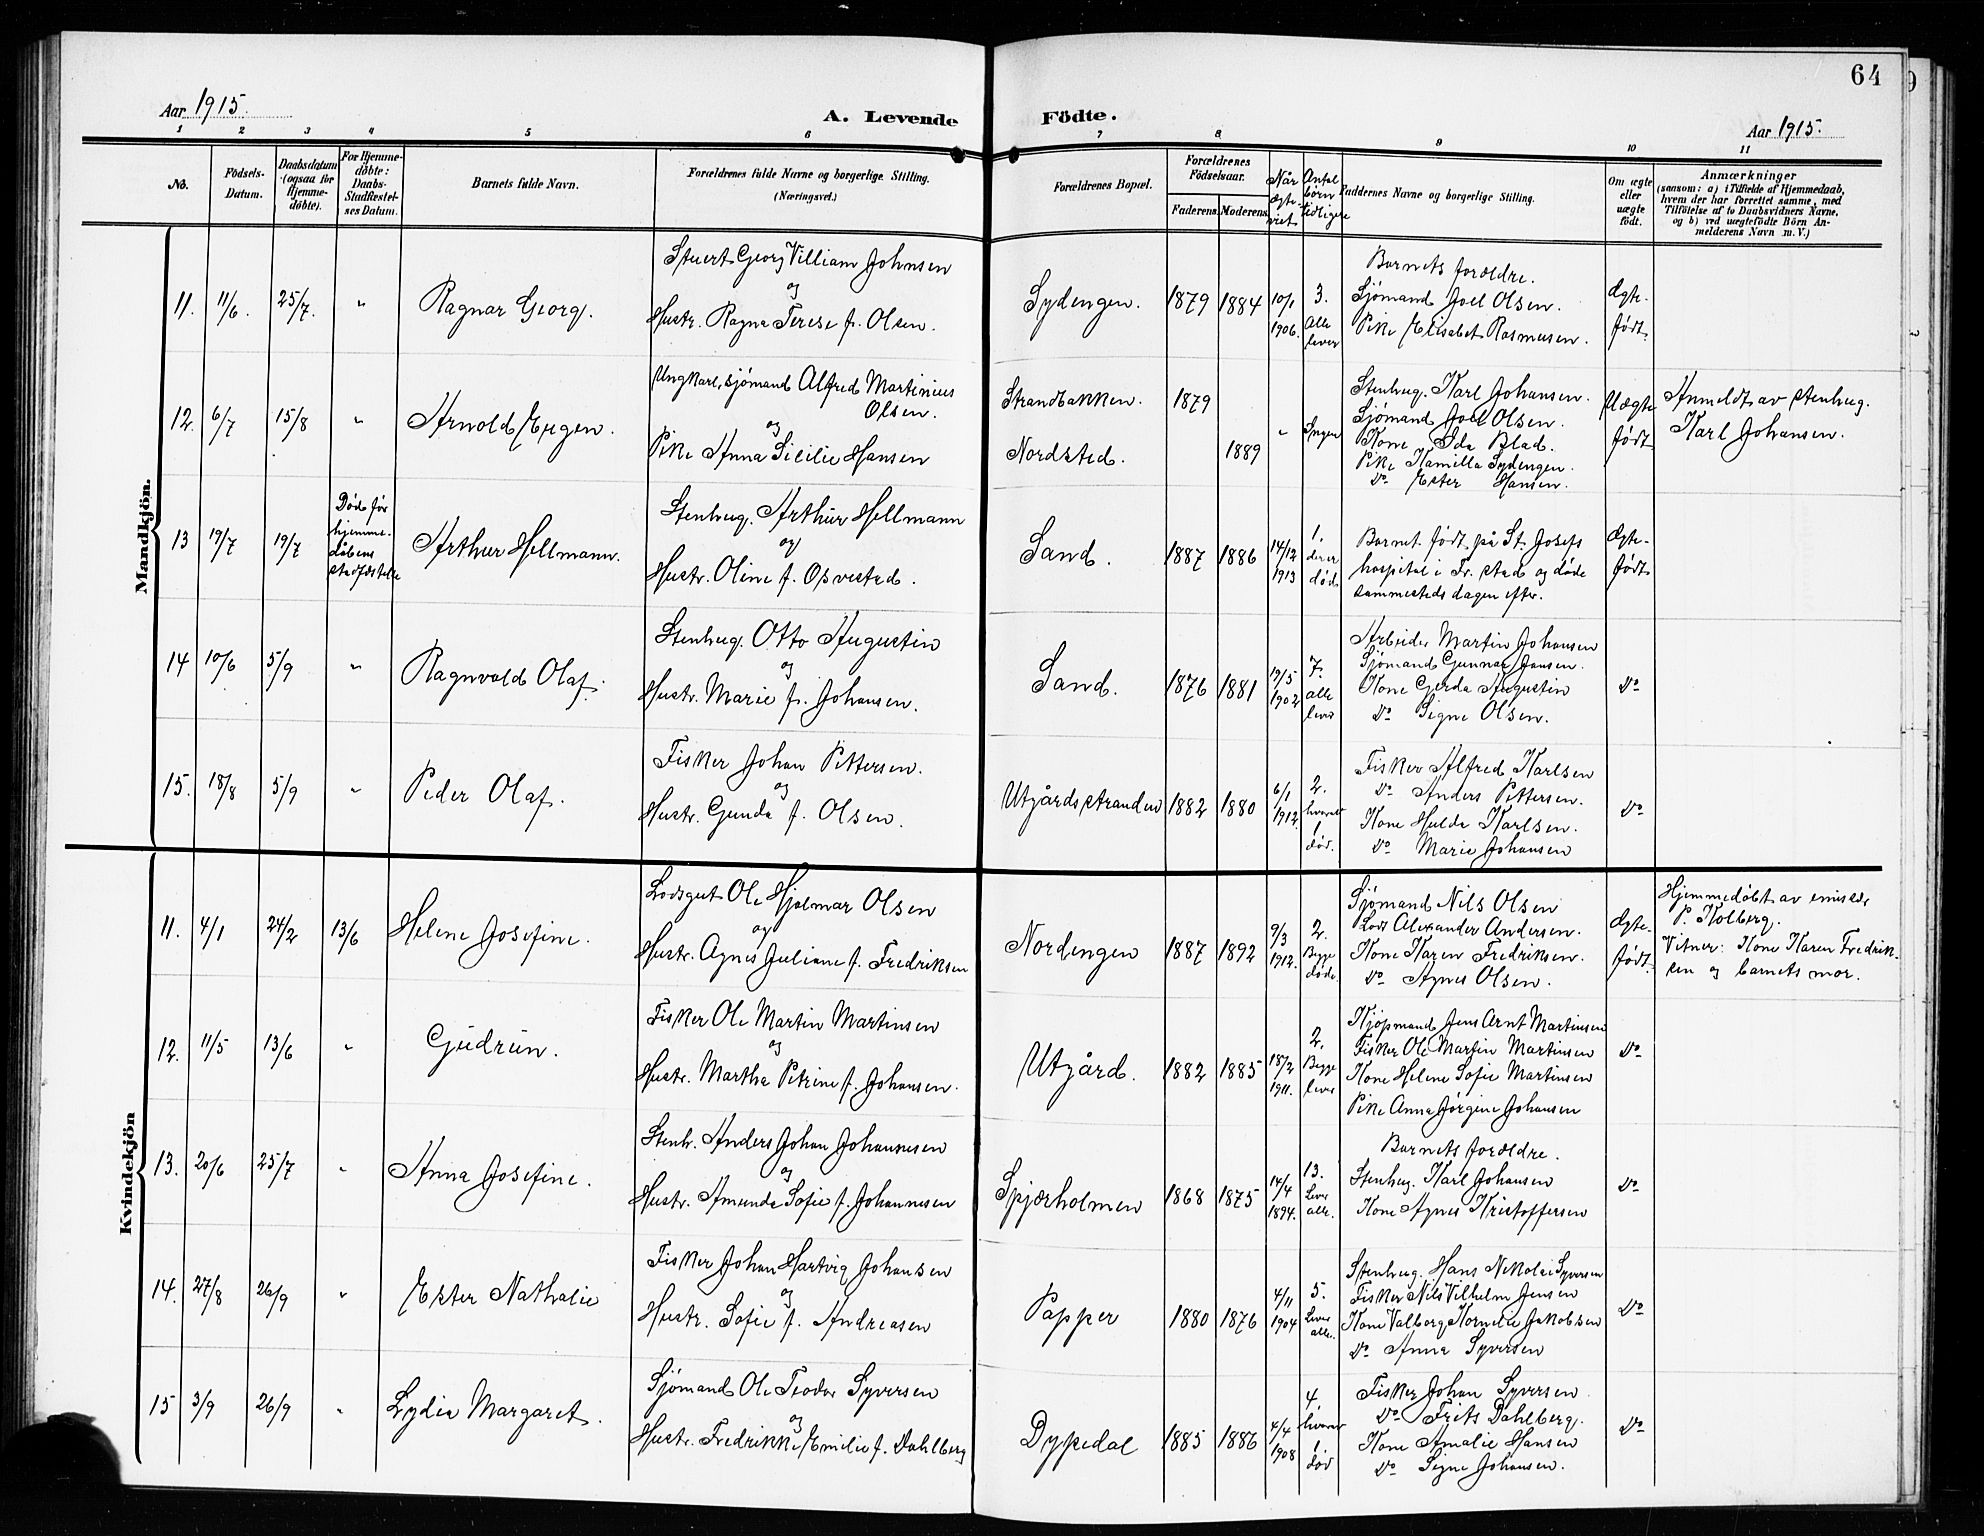 64
Aar 1915.
A. Levende Födte.
Aar 1915.
1 2 3 4 5 6 7 8 9 10 11
No.
Födsels-
Datum.
Daabsdatum
(ogsaa for
Hjemme-
döbte).
For Hjemme-
döbte:
Daabs-
Stadfæstel-
ses Datum.
Barnets fulde Navn.
Forældrenes fulde Navne og borgerlige Stilling.
(Næringsvei.)
Forældrenes Bopæl.
Forældrenes
Födselsaar.
Faderens.
Moderens.
Når
egte-
viet
Antal
børn
tidligere
Faddernes Navne og borgerlige Stilling.
Om ægte
eller
uægte
födt.
Anmærkninger
(saasom: a) i Tilfælde af Hjemmedaab,
hvem der har forrettet samme, med
Tilföielse af to Daabsvidners Navne,
og b) ved uægtefödte Börn An-
melderens Navn m. V.)
Mandkjön.
11. 11/6. 25/7. "
Ragnar Georg.
Stuert Georg Villiam Johnsen
og
Hustr. Ragna Terese f. Olsen.
Sydengen.
1879 1884
10/1
1906.
3.
Alle
lever
Barnets forældre.
Sjømand Joel Olsen.
Pike Elisabet Rasmusen.
Ægte-
født.
12. 6/7 15/8 "
Arnold Eugen.
Ungkarl, sjømand Alfred Martinius
Olsen.
og
Pike Anna Sicilie Hansen
Strandbakken.
Nordsted.
1879
1889
"
Ingen
Stenhug. Karl Johansen.
Sjømand Joel Olsen.
Kone Ida Blad.
Pike Kamilla Sydengen.
Do Ester Hansen.
Uægte
født
Anmeldt av stenhug.
Karl Johansen.
13 19/7 19/7
Døde før
hjemme-
dåbens
stadfæstelse
Arthur Hellmann.
Stenhug. Arthur Hellmann
og
Hustr. Oline f. Opvestad.
Sand.
1887 1886
14/12
1913
1.
der er
død
Barnet født på St. Josefs
hospital i Fr.stad og døde
sammesteds dagen efter.
Ægte-
født
14 10/6 5/9 "
Ragnvald Olaf.
Stenhug. Otto Augustin
og
Hustr. Marie f. Johansen.
Sand.
1876 1881
19/5
1902
7.
alle
lever
Arbeider Martin Johansen
Sjømand Gunnar Jansen.
Kone Gerda Augustin
Do Signe Olsen.
Do
15. 18/8 5/9 "
Peder Olaf.
Fisker Johan Pettersen.
og
Hustr. Gunda f. Olsen.
Utgårdstranden
1882 1880
6/1
1912.
2.
hvorav
1
død.
Fisker Alfred Karlsen
Do Anders Pettersen.
Kone Hulda Karlsen.
Do Marie Johansen
Do
Kvindekjön
11. 4/1 24/2 13/6
Helene Josefine.
Lodsgut Ole Hjalmar Olsen
og
Hustr. Agnes Juliane f. Fredriksen
Nordengen
1887 1892
9/3
1912.
2.
Begge
døde.
Sjømand Nils Olsen
Lods Alexander Andersen.
Kone Karen Fredriksen.
Do Agnes Olsen.
Ægte-
født.
Hjemmedøbt av emissær
P. Kolberg.
Vitner: Kone Karen Fredrik-
sen og barnets mor.
12. 11/5 13/6 "
Gudrun.
Fisker Ole Martin Martinsen
og
Hustr. Martha Petrine f. Johansen.
Utgård.
1882 1885
18/2
1911.
2.
Begge
lever
Kjøpmand Jens Arnt Martinsen
Fisker Ole Martin Martinsen
Kone Helene Sofie Martinsen
Pike Anna Jørgine Johansen
Do
13. 20/6 25/7 "
Anna Josefine.
Stenh. Anders Johan Johannesen
og
Hustr. Amunda Sofie f. Johannesen
Spjærholmen
1868 1875
14/4
1894.
13.
Lever
alle.
Barnets forældre.
Stenhug. Karl Johansen
Kone Agnes Kristoffersen
Do
14. 27/8 26/9 "
Ester Nathalie
Fisker Johan Hartvig Johansen
og
Hustr. Sofie f. Andreasen
Papper
1880 1876
4/11
1904
5.
Lever
alle.
Stenhug. Hans Nikolai Syversen
Fisker Nils Vilhelm Jensen
Kone Valborg Kornelie Jakobsen
Do Anna Syversen
Do
15 3/9 26/9 "
Lydia Margaret.
Sjømand Ole Teodor Syversen
og
Hustr. Fredrikke Emilie f. Dahlberg
Dypedal
1885 1886
4/4
1908
4
hvorav
1
død
Fisker Johan Syversen
Do Frits Dahlberg.
Kone Amalie Hansen
Do Signe Johansen.
Do